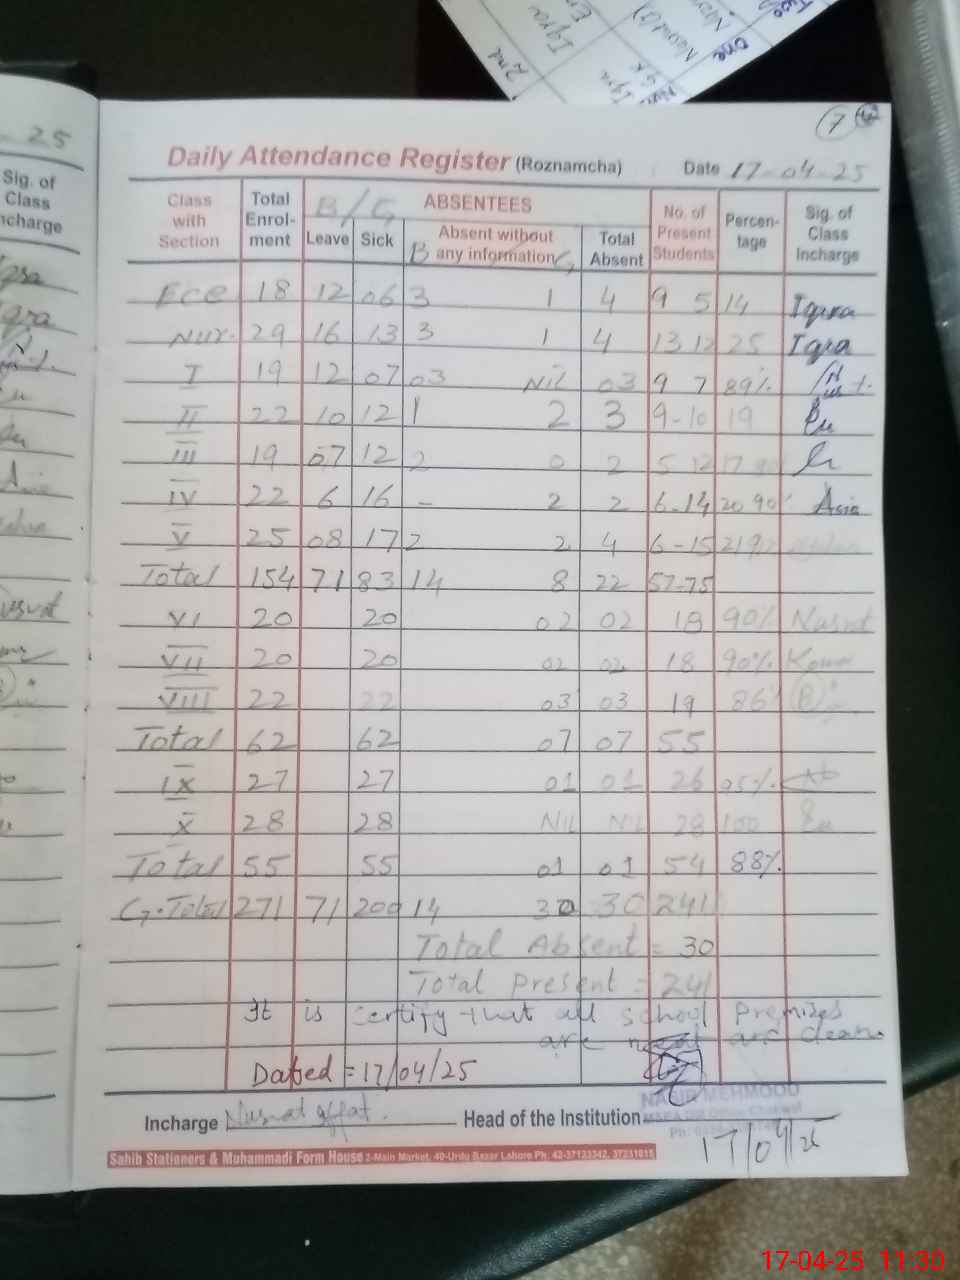 2nd
Iqra
one
7
25
Daily Attendance Register (Roznamcha) Date 17-04-25
Sig. of
Class
ncharge
Class with Section Total Enrol-ment B/G ABSENTEES No. of Present Students Percen-tage Sig. of Class Incharge
Leave Sick B Absent without any information G Total Absent
Ece 18 12 06 3 1 4 9 5 14 Iqra
Nur. 29 16 13 3 1 4 13 12 25 Iqra
I 19 12 07 03 Nil 03 9 7 89%
II 22 10 12 1 2 3 9-10 19
III 19 07 12 2 0 2 5 12 17
IV 22 6 16 - 2 2 6-14 20 90% Asia
V 25 08 17 2 2 4 6-15 21
Total 154 71 83 14 8 22 57-75
VI 20 20 02 02 18 90% Nusrat
VII 20 20 02 02 18 90%
VIII 22 22 03 03 19 86%
Total 62 62 07 07 55
IX 27 27 01 01 26 95%
X 28 28 Nil Nil 28 100
Total 55 55 01 01 54 88%
G.Total 271 71 200 14 30 30 241
Total Absent = 30
Total Present = 241
It is certify that all school Premizes
are neat and clean
Dated = 17/04/25
Incharge Nusrat effat. Head of the Institution
NASIR MEHMOOD
17/04/25
Sahib Stationers & Muhammadi Form House 2-Main Market, 40-Urdu Bazar Lahore Ph. 42-37123342, 37231815
17-04-25 11:30